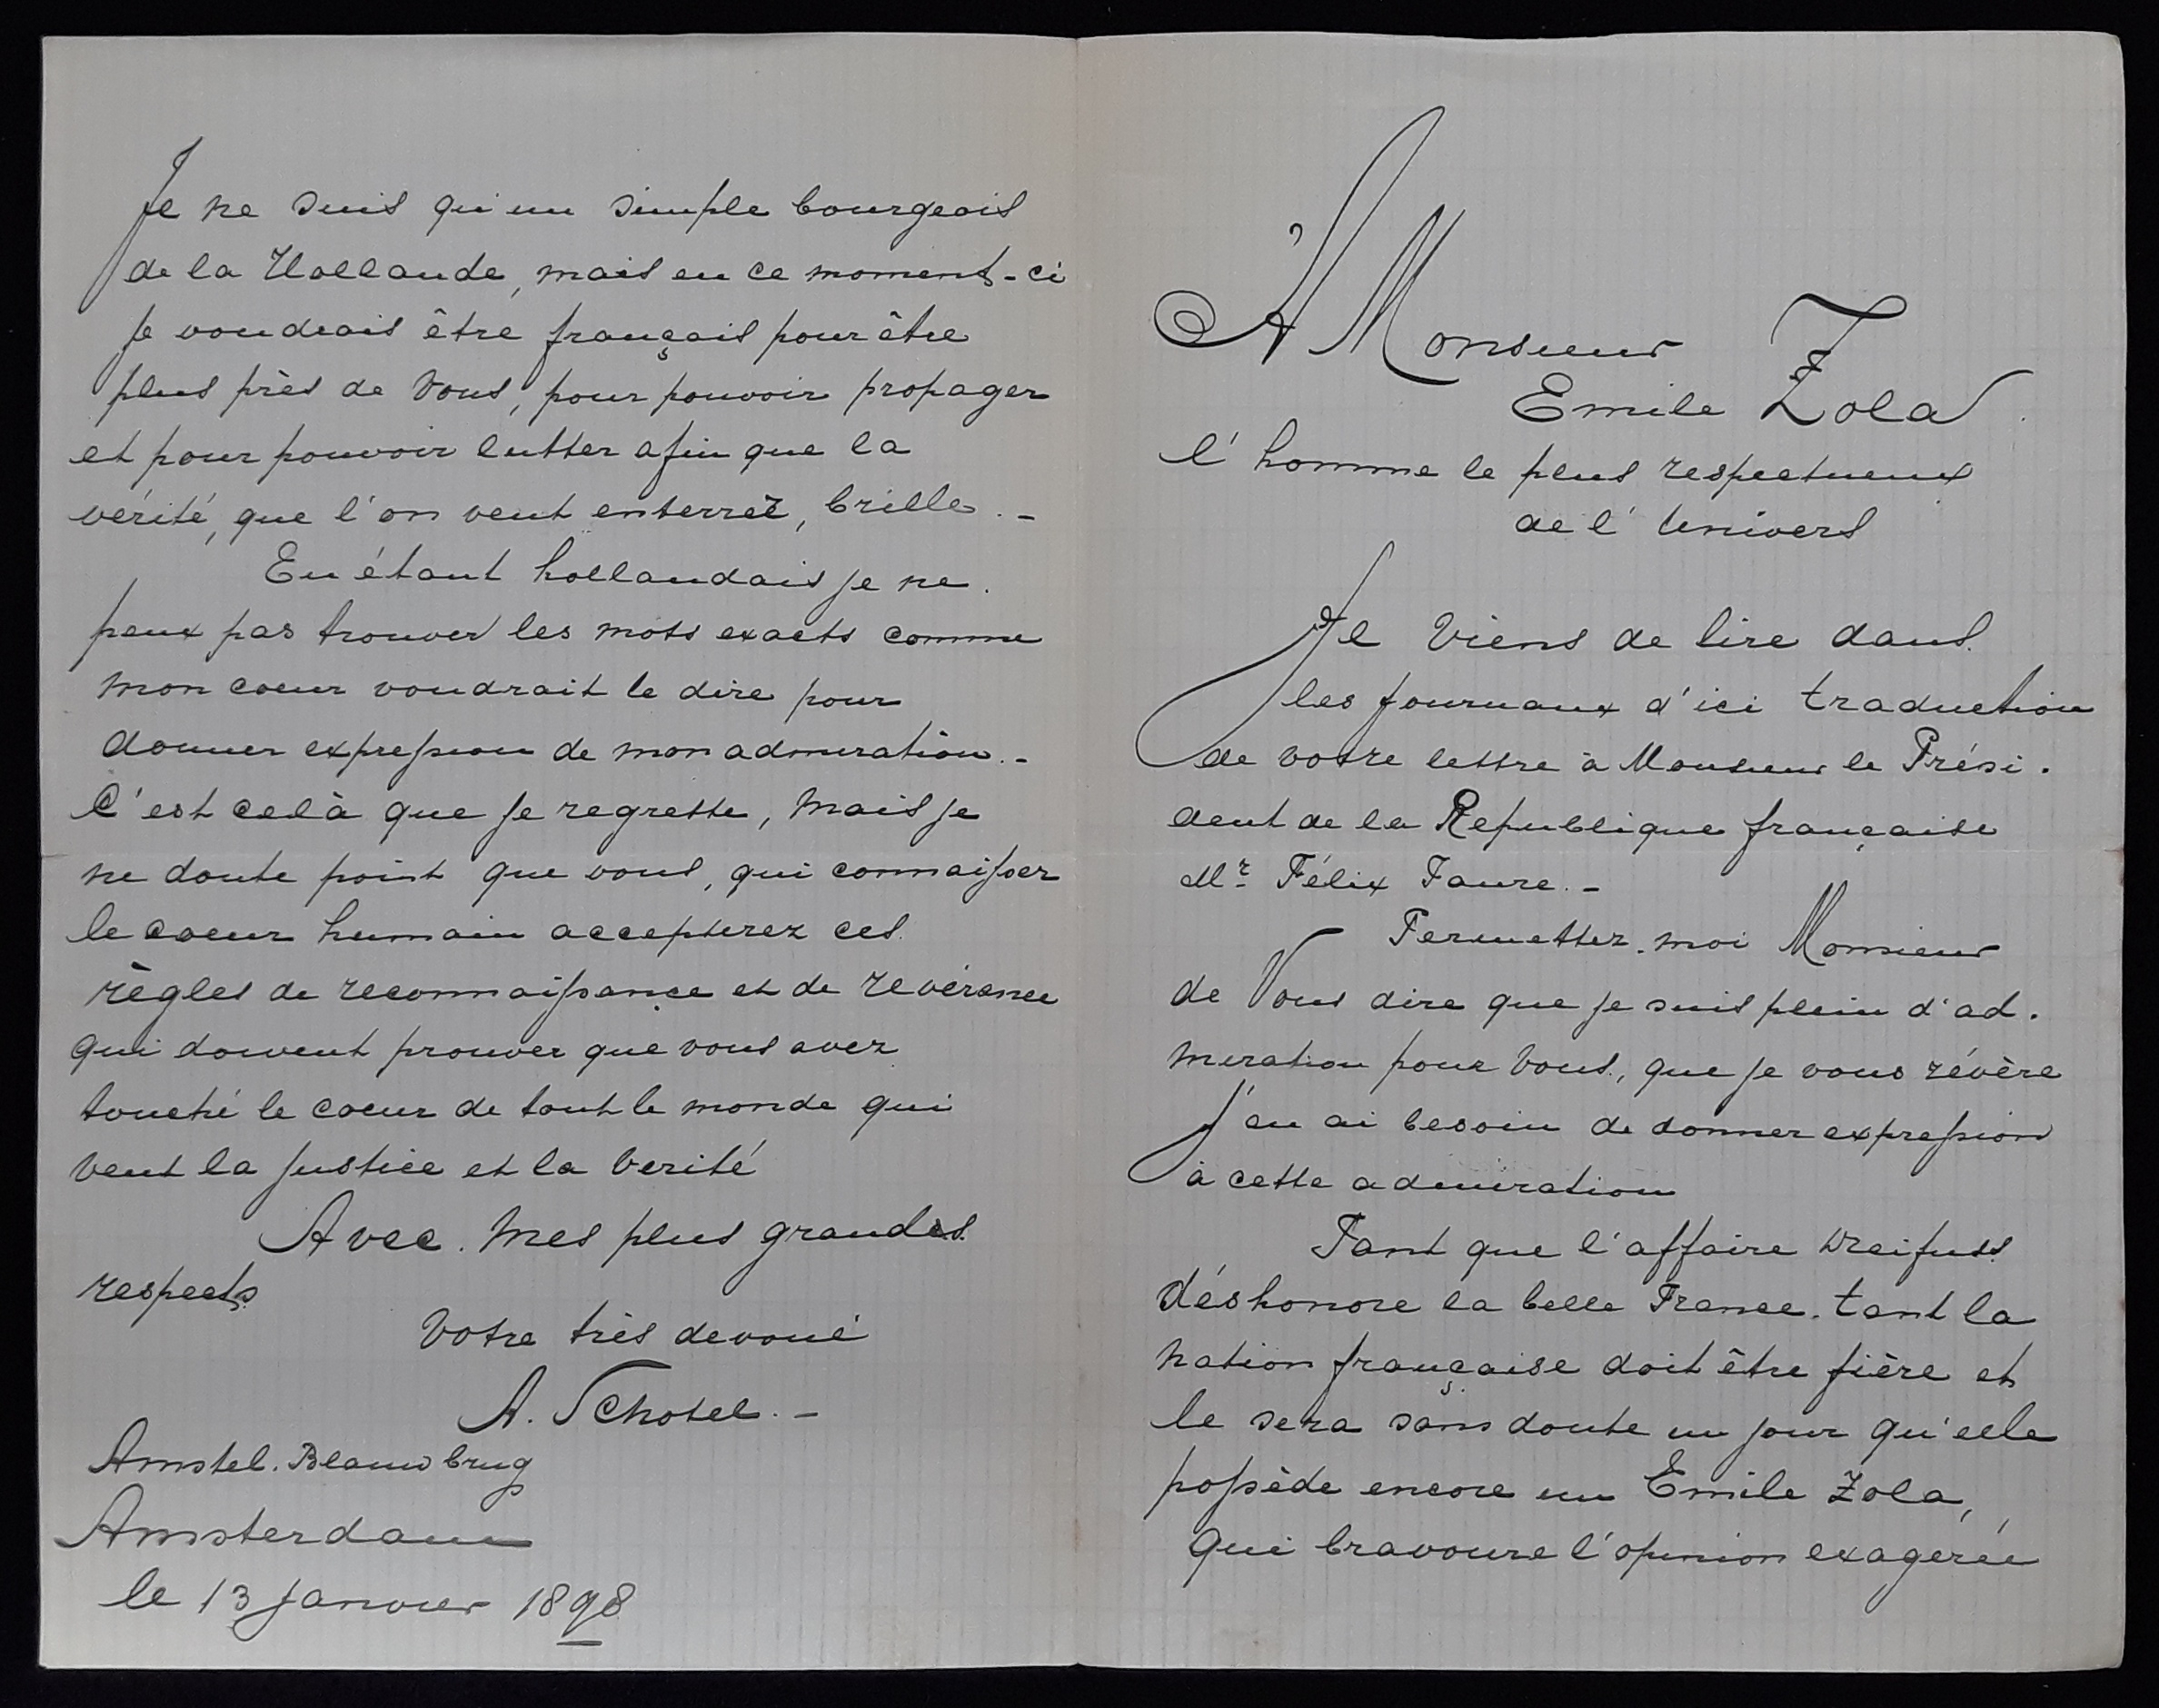 À Monsieur
Emile Zola
l'homme le plus respectueux
de l'Univers
Je viens de lire dans
les journaux d'ici traduction
de votre lettre à Monsieur le Prési-
dent de la Republique française
Mr Félix Faure. -
Permettez-moi Monsieur
de Vous dire que je suis plein d'ad-
miration pour Vous, que je vous révère
J'en ai besoin de donner expression
à cette admiration
Tant que l'affaire Dreifuss
déshonore la belle France. tant la
nation française doit être fière et
le sera sans doute un jour qu'elle
possède encore un Emile Zola,
qui bravoure l'opinion exagérée
Je ne suis qu'un simple bourgeois
de la Hollande, mais en ce moment-ci
je voudrais être français pour être
plus près de Vous, pour pouvoir propager
et pour pouvoir lutter afin que la
vérité, que l'on veut enterrer, brille. -
En étant hollandais je ne
peux pas trouver les mots exacts comme
mon coeur voudrait le dire pour
donner expression de mon admiration. -
C'est celà que je regrette, mais je
ne doute point que vous, qui connaissez
le coeur humain accepterez ces
règles de reconnaissançe et de revérence
qui doivent prouver que vous avez
touché le coeur de tout le monde qui
veut la justice et la verité
Avec mes plus grandes
respects
Votre très devoué
A. Schotel. -
Amstel. Blauwbrug
Amsterdam
le 13 janvier 1898